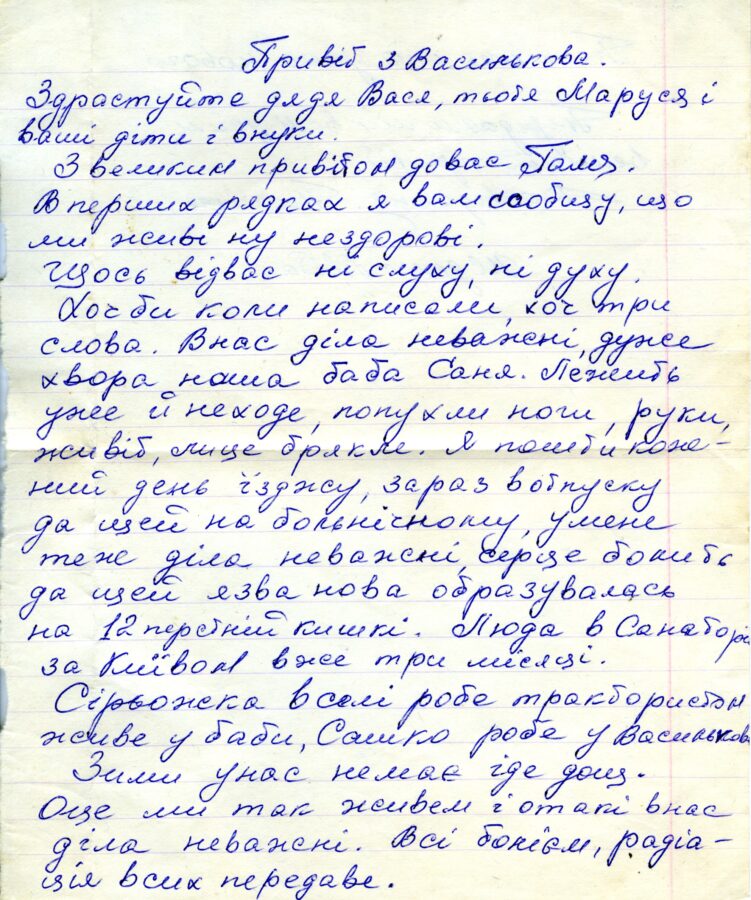 Привіб з Василькова.
Здрастуйте дядя Вася, тьотя Маруся і
ваші діти і внуки.
З великим привітом довас Галя.
В перших рядках я вам сообщу, що
ми живі ну нездорові.
Щось відвас ні слуху, ні духу.
Хоч би коли написали, хоч три
слова. Внас діла неважні, дуже
хвора наша баба Саня. Лежить
уже й неходе, попухли ноги, руки,
живіт, лице брякле. Я пошти кож-
ний день їзджу, зараз вотпуску
да щей на больнічному, умене
теж діла неважні, серце болить
да щей язва нова образувалась
на 12 перстній кишкі. Люда в Санаторі
за Київом вже три місяці.
Сірьожка вселі робе трактористом
живе у баби, Сашко робе у Василькові
Зими унас немає іде дощ.
Оце ми так живем і отакі внас
діла неважні. Всі болієм, радіа-
ція всих передаве.